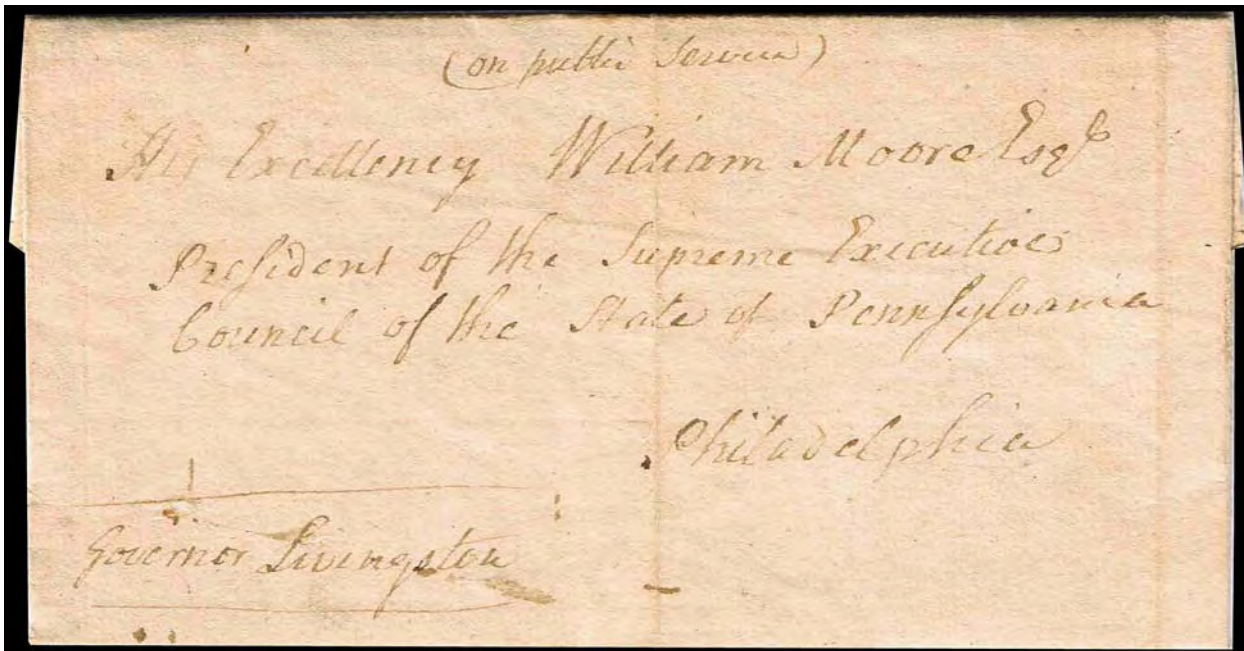 (on public Service)
His Excellency William Moore Esqr
President of the Supreme Executive
Council of the State of Pennsylvania
Philadelphia
Governor Livingston